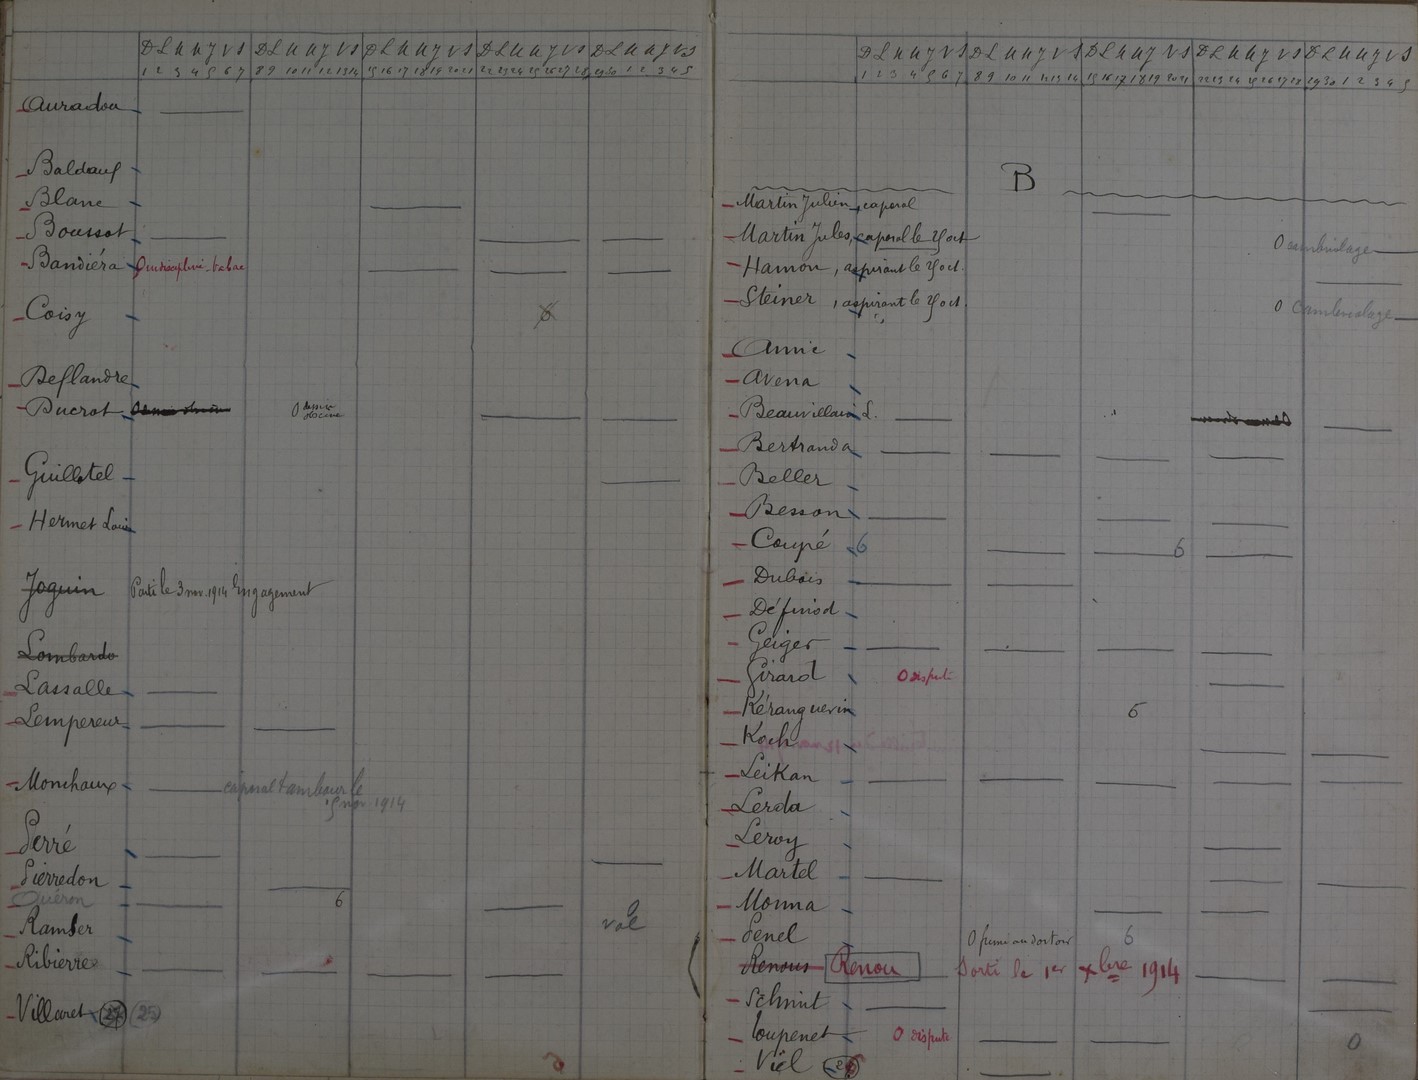 D L M M J V S D L M M J V S D L M M J V S D L M M J V S D L M M J V S
1 2 3 4 5 6 7 8 9 10 11 12 13 14 15 16 17 18 19 20 21 22 23 24 25 26 27 28 29 30 1 2 3 4 5
Auradou
Baldauf
Blanc
Boussot
Bandiéra O indiscipline - tabac
Coisy 6
Deflandre
Ducrot O dessin obscène
Guillotel
Hermet Louis
Joquin Parti le 3 nov. 1914 Engagement
Lombardo
Lassalle
Lempereur
Monchaux caporal tambour le
5 nov. 1914
Perré
Pierredon
Quéron 6
Ramber 0 vol
Ribierre
Villaret (25)
D L M M J V S D L M M J V S D L M M J V S D L M M J V S D L M M J V S
1 2 3 4 5 6 7 8 9 10 11 12 13 14 15 16 17 18 19 20 21 22 23 24 25 26 27 28 29 30 1 2 3 4 5
B
Martin Julien, caporal
Martin Jules, caporal le oct O cambriolage
Hamon, aspirant le oct.
Steiner, aspirant le oct. O cambriolage
Amic
Avena
Beauvillain L.
Bertranda
Beller
Besson
Coupé 6 6
Dubois
Définod
Geiger
Girard O dispute
Kéranguevin 6
Koch
Leikan
Lerda
Leroy
Martel
Monna
Penel O fumé au dortoir 6
Renous Renou Sorti le 1er Xbre 1914
Schmit
Loupenet O dispute 0
Viel